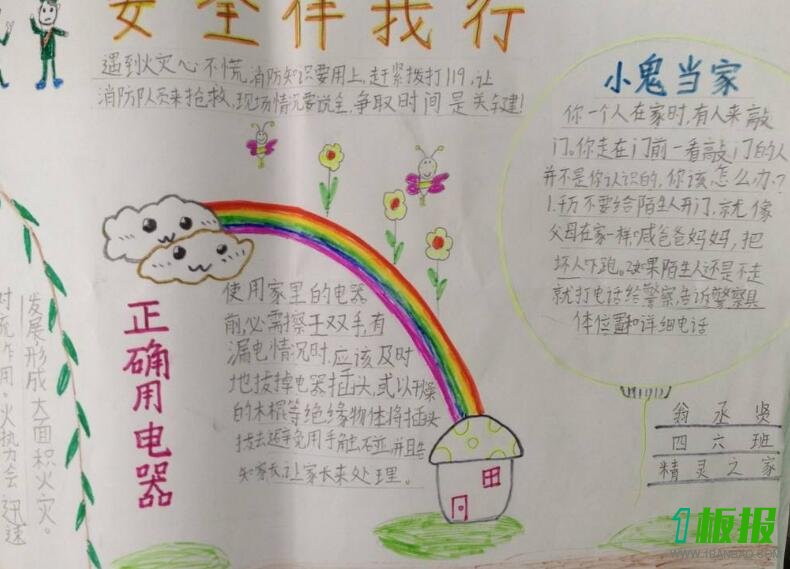 安全伴我行
遇到火灾心不慌,消防知识要用上,赶紧拨打119,让
消防队员来抢救,现场情况要说全,争取时间是关键!
小鬼当家
你一个人在家时,有人来敲
门。你走在门前一看敲门的人
并不是你认识的,你该怎么办?
1.千万不要给陌生人开门,就像
父母在家一样喊爸爸妈妈,把
坏人下跑。如果陌生人还是不走
就打电话给警察,告诉警察具
体位置和详细电话
正确用电器
使用家里的电器
前,必需擦干双手,有
漏电情况时,应该及时
地拔掉电器插头,式以干燥
的木棍等绝缘物体将插头
拔去避免用手触不亚,并且告
知家长,让家长来处理。
发展形成大面积火灾。
对流作用。火热力会迅速
翁丞贤
四六班
精灵之家
1板报
WWW.1BANBAO.COM